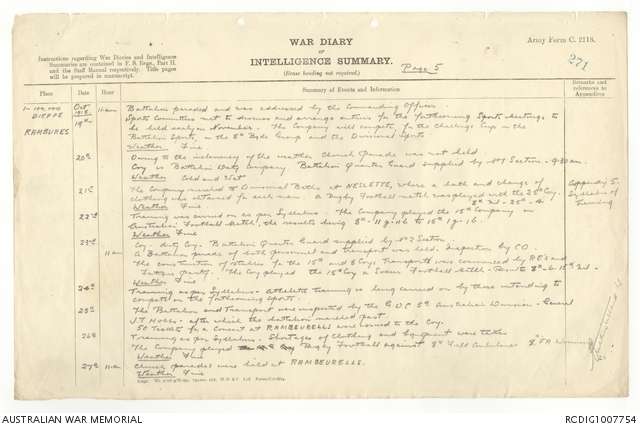 WAR DIARY
or
INTELLIGENCE SUMMARY.
(Erase heading not required.)
Army Form C. 2118.
271
Page 5
Instructions regarding War Diaries and Intelligence
Summaries are contained in F. S. Regs., Part II.
and the Staff Manual respectively. Title pages
will be prepared in manuscript.
Place
Date
Hour
Summary of Events and Information
Remarks and
references to
Appendices
1-100,000
DIEPPE
RAMBURES
Oct
1918
19th
11am
Battalion paraded and was addressed by the Commanding Officer.
Sports Committee met to discuss and arrange entries for the forthcoming Sports Meeting, to
be held early in November. The Company will compete for the challenge Cup in the
Battalion Sports, in the 5th Bgde Group and the Divisional Sports
Weather Fine
20th
Owing to the inclemency of the weather Church Parade was not held.
Coy is Battalion Duty Company Battalion Quarter Guard supplied by No 1 Section - 9.30am.
Weather Cold and Wet
21st
The Company marched to Divisional Baths at NESLETTE, where a bath and change of
clothing was obtained for each man. A Rugby Football match was played with the 25th Coy.
Weather Fine
8th
Appendix 5.
Syllabus of
Training
22nd
Training was carried on as per Syllabus. The Company played the 15th Company an
Australian Football Match, the results being 8th 11g-16 to 15th 1g-16
Weather Fine
23rd
Coy. duty Coy. Battalion Quarter Guard supplied by No 2 Section
11am
A Battalion parade of both personnel and transport was held. Inspection by CO.
The construction of stables for the 15th and 8 Coys Transports was commenced by REs and
fatigue party. The Coy played the 15th Coy a Soccer Football Match - Result 8th-6 15th Nil.
Weather Fine
24th
Training as per Syllabus - Athletic training is being carried on by those intending to
compete in the forthcoming sports.
25th
The Battalion and Transport was inspected by the G.O.C. 5th Australian Division - General
J.T. HOBBS - after which the battalion marched past.
50 Tickets for a Concert at RAMBEURELLS was issued to the Coy.
26th
Training as per Syllabus. Shortage of clothing and Equipment was taken
The Company played Rugby Football against 8th Field Ambulance
Weather Fine
27th
11am
Church parades were held at RAMBEURELLS.
Weather Fine
AUSTRALIAN WAR MEMORIAL
RCDIG1007754